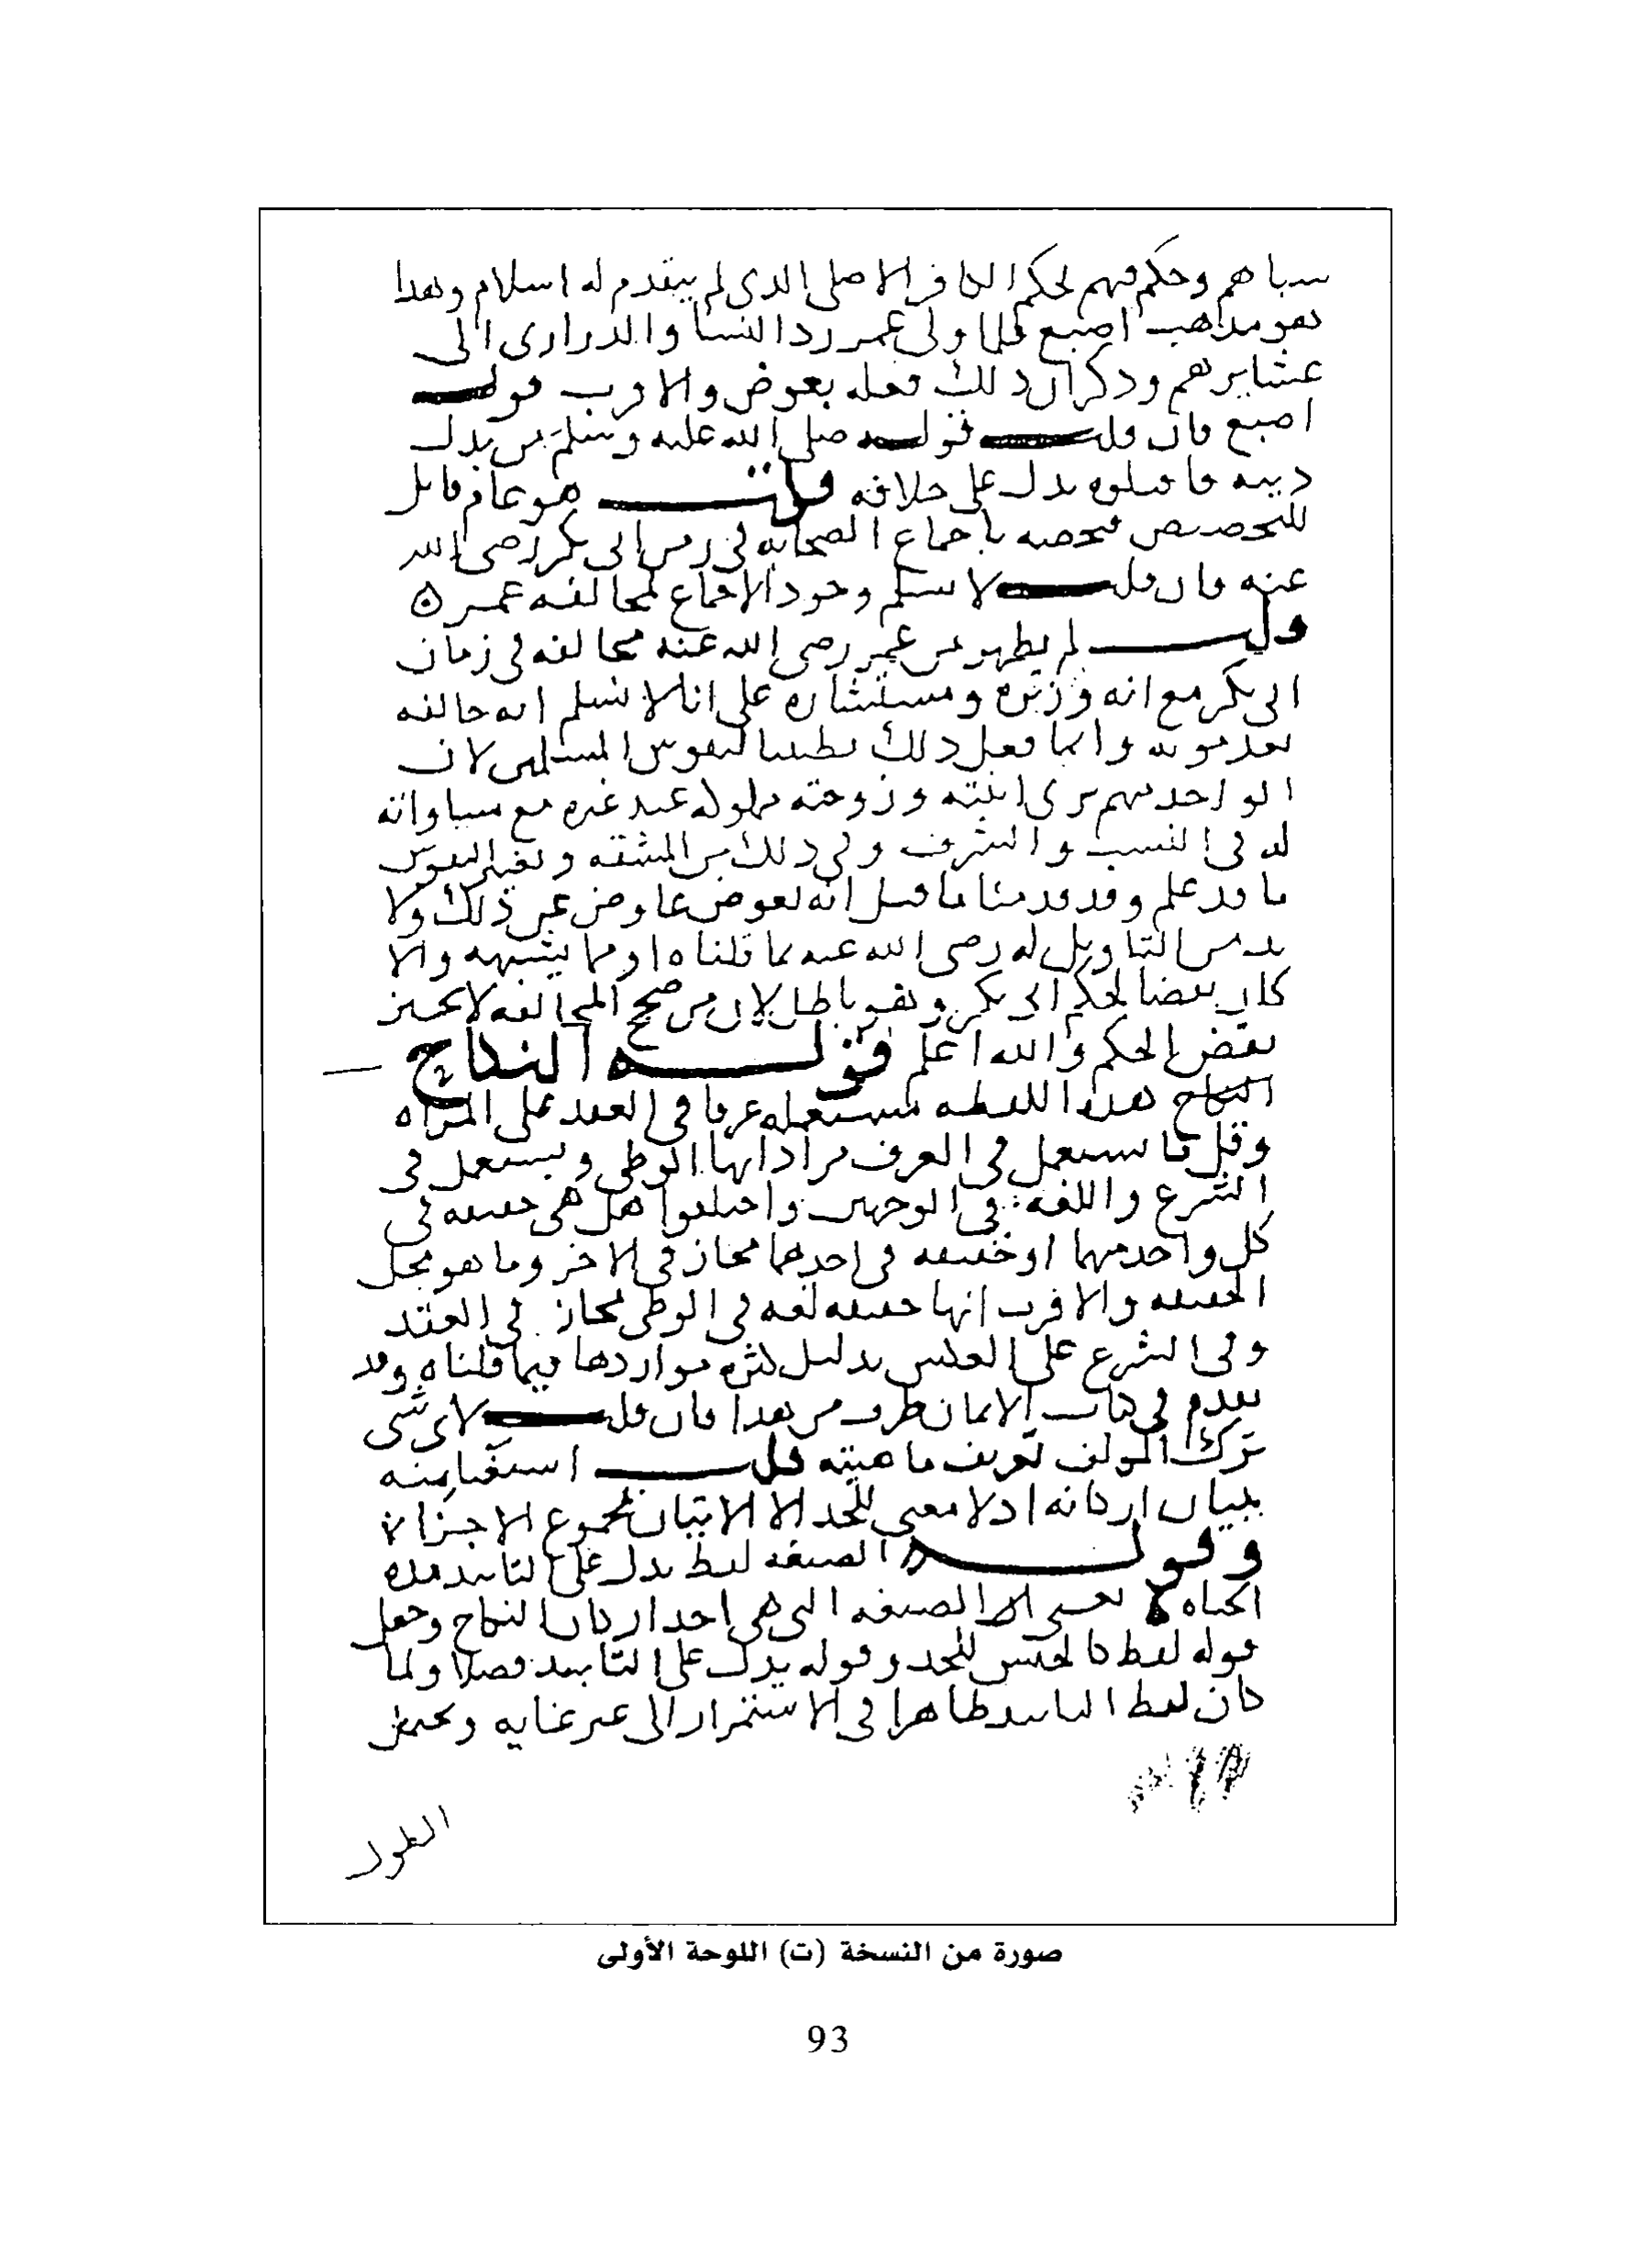 سباهم وحكم فيهم بحكم الكافر الاصلي الذي لم يتقدم له اسلام وهذا
هو مذهب اصبغ فلما ولي عمر رد النسا والذراري الى
عشايرهم وذكر ان ذلك فعله بعوض والاقرب قول
اصبغ فان قلت قوله صلى الله عليه وسلم من بدل
دينه فاقتلوه يدل على خلافه قلت هو عام قابل
للتخصيص فنخصه باجماع الصحابة في زمن ابي بكر رضي الله
عنه فان قلت لا نسلم وجود الاجماع لمخالفة عمر
قلت لم يظهر من عمر رضي الله عنه مخالفة في زمان
ابي بكر مع انه وزيره ومستشاره على انا لا نسلم انه خالفه
بعد موته وانما فعل ذلك تطييبا لنفوس المسلمين لان
الواحد منهم يرى ابنته وزوجته مملوكة عند غيره مع مساواته
له في النسب والشرف وفي ذلك من المشقة وتغيير النفوس
ما قد علم وقد قدمنا ما قيل انه بعوض عاوض عن ذلك ولا
بد من التاويل له رضي الله عنه بما قلناه او بما يشبهه والا
كان نقضا لحكم ابي بكر وهو باطل لان من صحح المخالفة لا يجيز
نقض الحكم والله اعلم قوله النكاح
النكاح هذه اللفظة مستعملة عرفا في العقد على المراة
وقل ما تستعمل في العرف مرادا بها الوطي وتستعمل في
الشرع واللغة في الوجهين واختلفوا هل هي حقيقة في
كل واحد منهما او حقيقة في احدهما مجاز في الاخر وما هو محل
الحقيقة والاقرب انها حقيقة لغة في الوطي مجاز في العقد
وفي الشرع على العكس بدليل كثرة مواردها فيما قلناه وقد
تقدم في كتاب الايمان طرف من هذا فان قلت لاي شي
ترك المولف تعريف ماهيته قلت استغنا منه
ببيان اركانه اذ لا معنى للحد الا الاتيان بمجموع الاجزا
وقوله الصيغة لفظ يدل على التابيد مدة
الحياة يعني ان الصيغة التي هي احد اركان النكاح وجعل
قوله لفظ كالجنس للحد وقوله يدل على التابيد فصلا ولما
كان لفظ التابيد ظاهرا في الاستمرار الى غير غاية ويحتمل
الطول
صورة من النسخة (ت) اللوحة الأولى
93